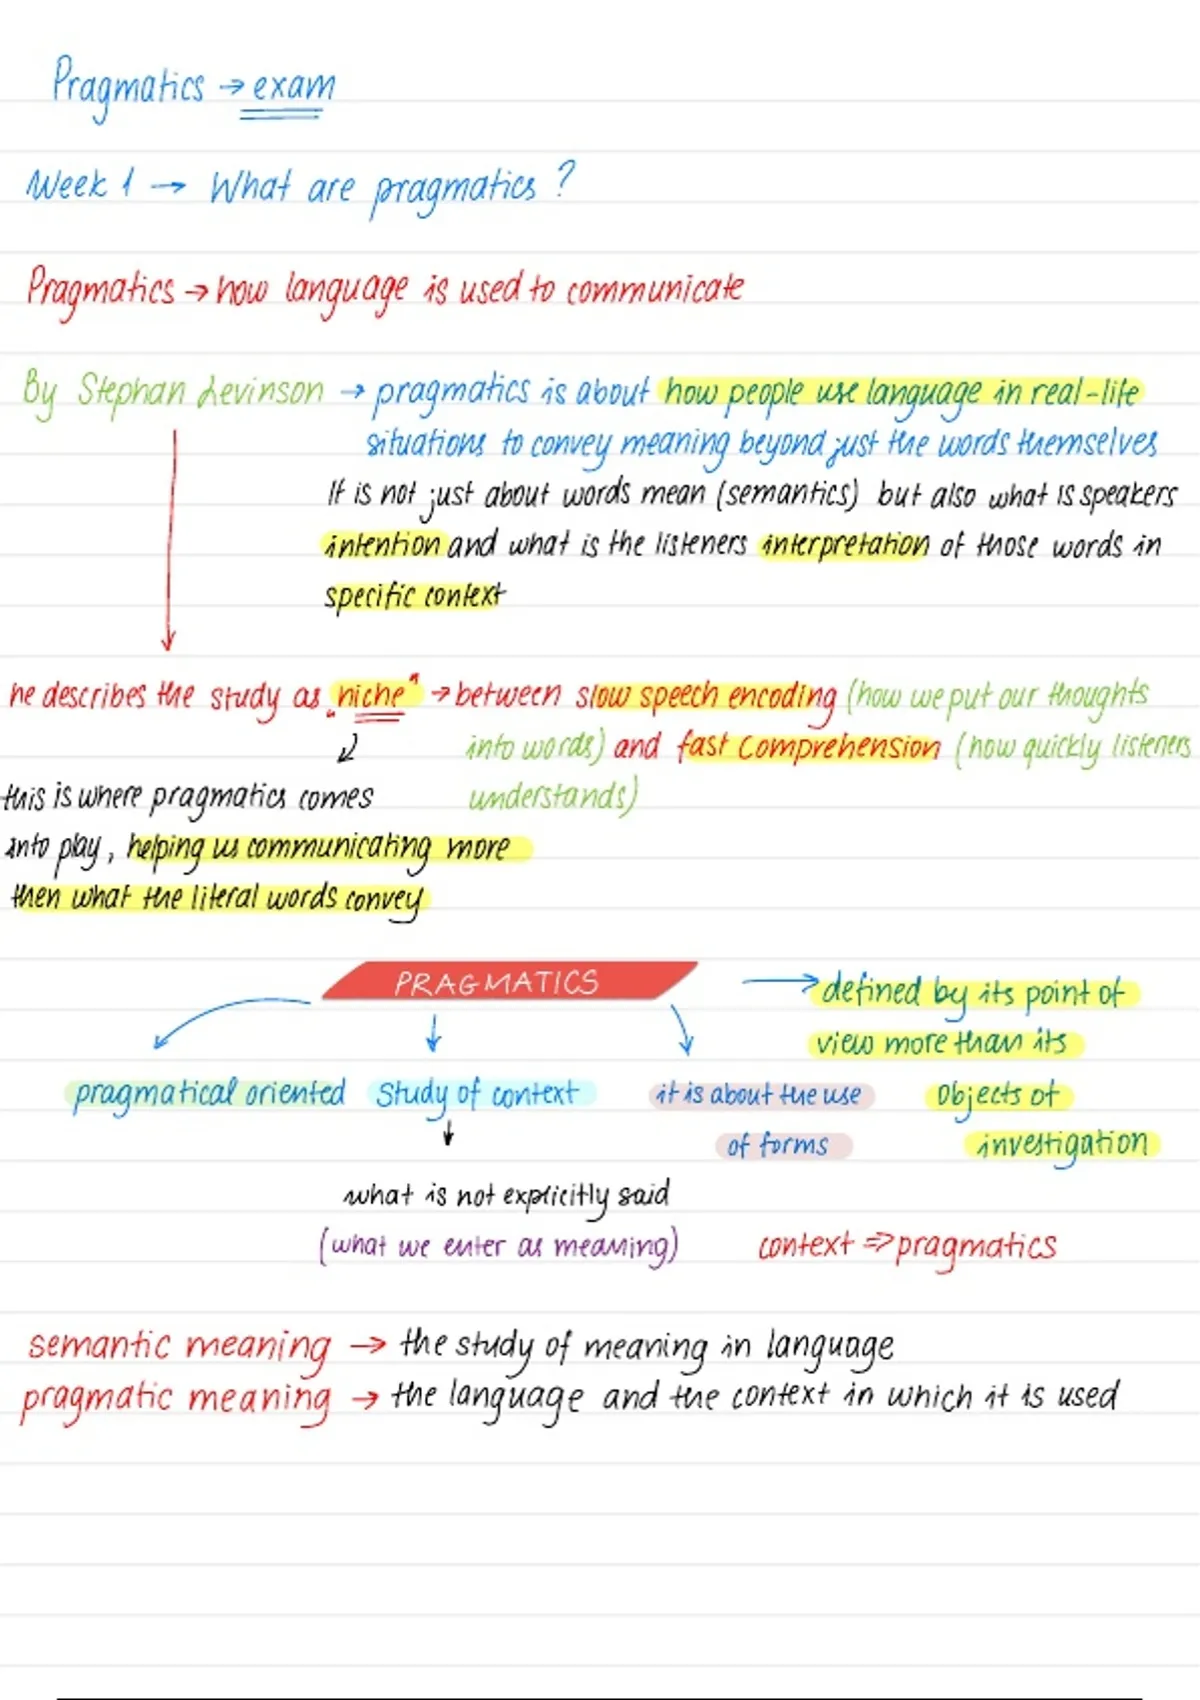 Pragmatics → exam
Week 1 → What are pragmatics ?
Pragmatics → how language is used to communicate
By Stephan Levinson → pragmatics is about how people use language in real-life
situations to convey meaning beyond just the words themselves
It is not just about words mean (semantics) but also what is speakers
intention and what is the listeners interpretation of those words in
specific context
he describes the study as "niche" → between slow speech encoding (how we put our thoughts
into words) and fast comprehension (how quickly listeners
understands)
this is where pragmatics comes
into play, helping us communicating more
then what the literal words convey
PRAGMATICS → defined by its point of
view more than its
Objects of
investigation
pragmatical oriented
Study of context
it is about the use
of forms
what is not explicitly said
(what we enter as meaning)
context => pragmatics
semantic meaning → the study of meaning in language
pragmatic meaning → the language and the context in which it is used